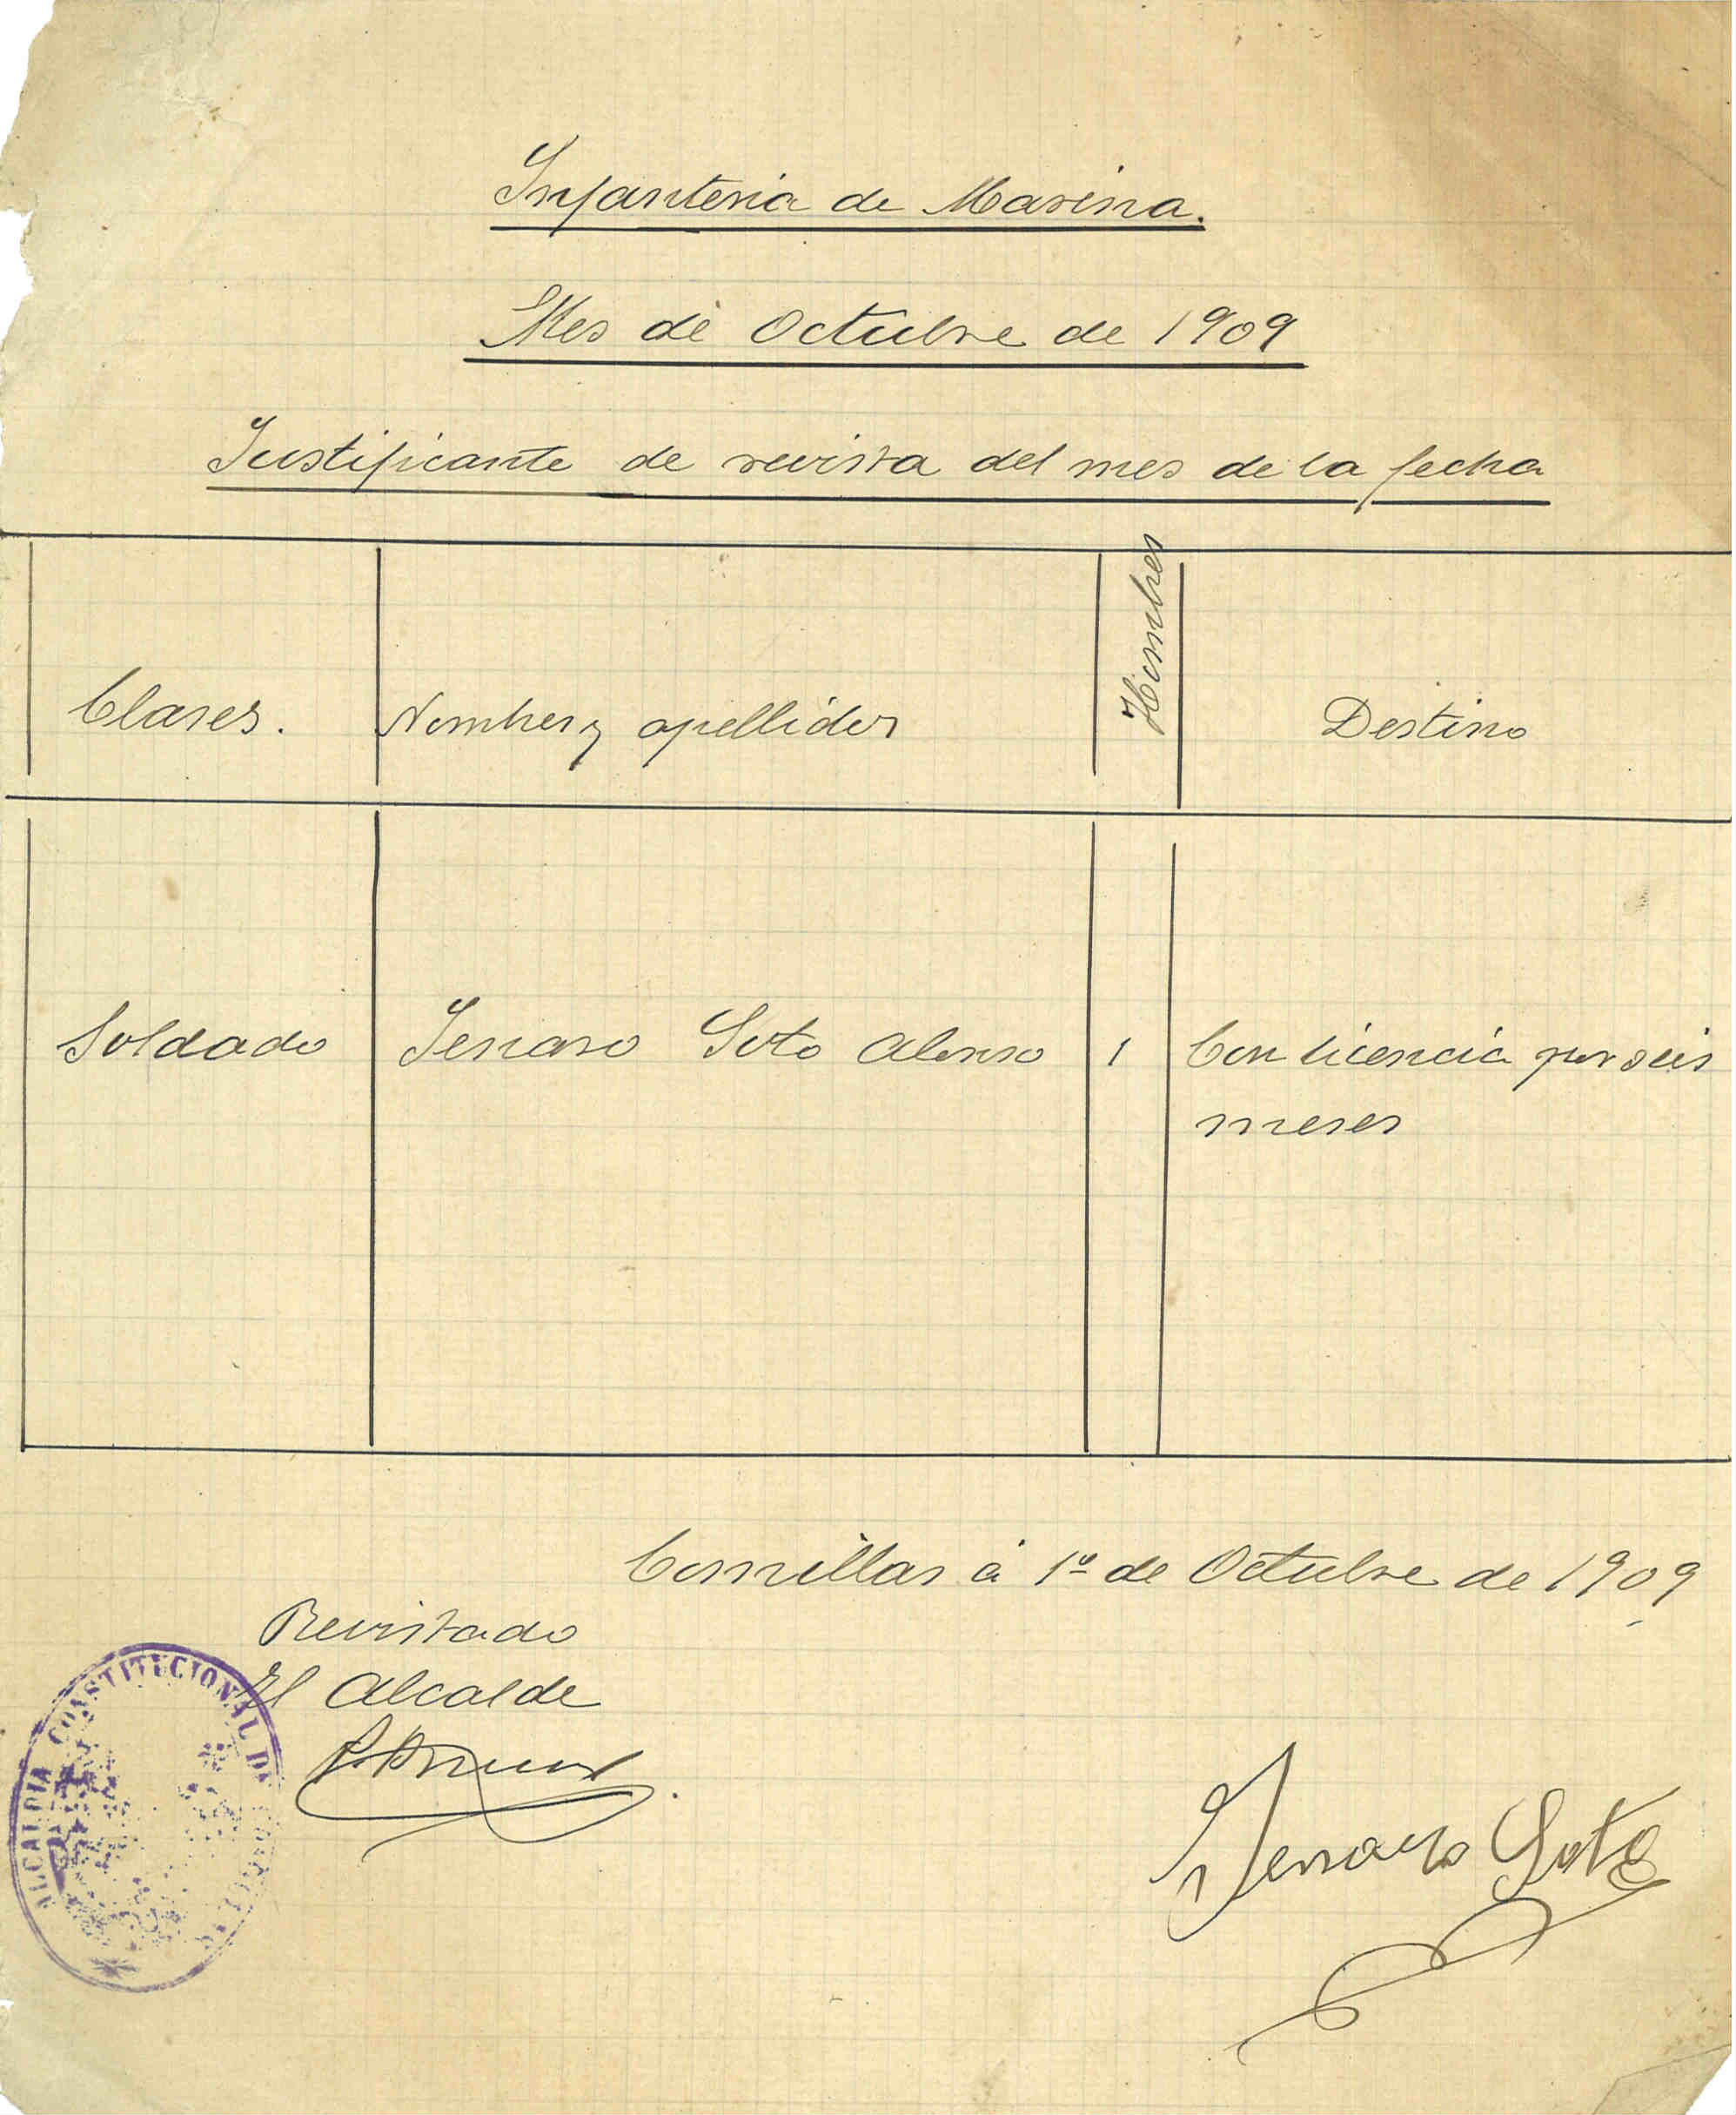 Infanteria de Marina.
Mes de Octubre de 1909
Justificante de revista del mes de la fecha
Clases.
Nombres y apellidos
Hombres
Destino
Soldado
Jenaro Soto Alonso
1
Con licencia por seis
meses
Comillas á 1º de Octubre de 1909
Revistado
El Alcalde
ALCALDIA CONSTITUCIONAL DE
Jenaro Soto